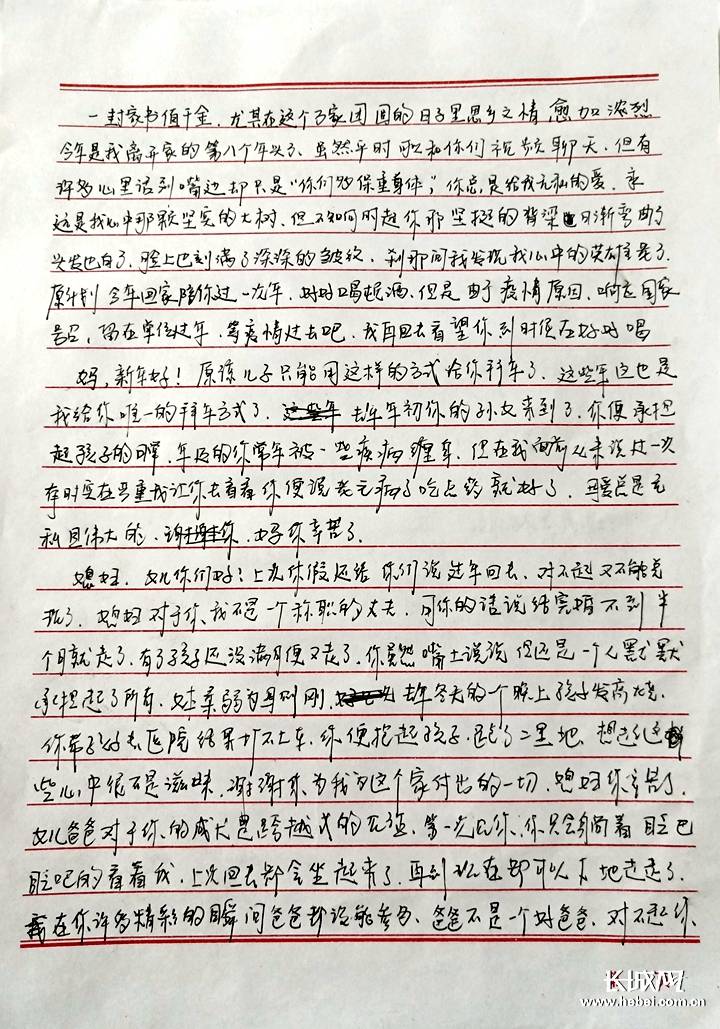 一封家书值千金，尤其在这个万家团圆的日子里思乡之情愈加浓烈
今年是我离开家的第八个年头了、虽然平时可以和你们视频聊天，但有
许多心里话到嘴边却只是“你们多保重身体”，你总是给我无私的爱，
这是我心中那颗坚实的大树，但不知何时起你那坚挺的背梁日渐弯曲了
头发也白了，脸上也刻满了深深的皱纹，刹那间我发现我心中的英雄老了.
原计划今年回家陪你过一次年，好好喝顿酒，但是由于疫情原因，响应国家
号召，留在单位过年，等疫情过去吧，我再回去看望你到时候在好好喝
妈，新年好！原谅儿子只能用这样的方式给你拜年了，这些年这也是
我给你唯一的拜年方式了．去年年初你的孙女来到了，你便承担
起孩子的日常，年迈的你常年被一些疾病缠身，但在我面前从来说过一次
有时实在严重我让你去看看你便说老毛病了吃点药就好了．母爱总是无
私且伟大的，谢谢你，妈你辛苦了．
媳妇，女儿你们好！上次休假还给你们说过年回去，对不起又不能兑
现了．媳妇对于你、我不是一个称职的丈夫，可你的话说结完婚不到半
个月就走了，有了孩子还没满月便又走了，你虽然嘴上说说但还是一个人默默
承担起了所有．女本柔弱为母则刚，去年冬天的一个晚上孩子发高烧．
你带孩子去医院结果打不上车．你便抱起孩子，走了二里地．想起这
些心中很不是滋味．谢谢你为我为这个家付出的一切，媳妇你辛苦了．
女儿爸爸对于你的成长是跨越式的见证．第一次见你、你只会躺着眼巴
眼巴的看着我，上次回去都会坐起来了．再到现在都可以下地走走了．
在你许多精彩的瞬间爸爸都没能参与、爸爸不是一个好爸爸．对不起你、
长城网
www.hebei.com.cn